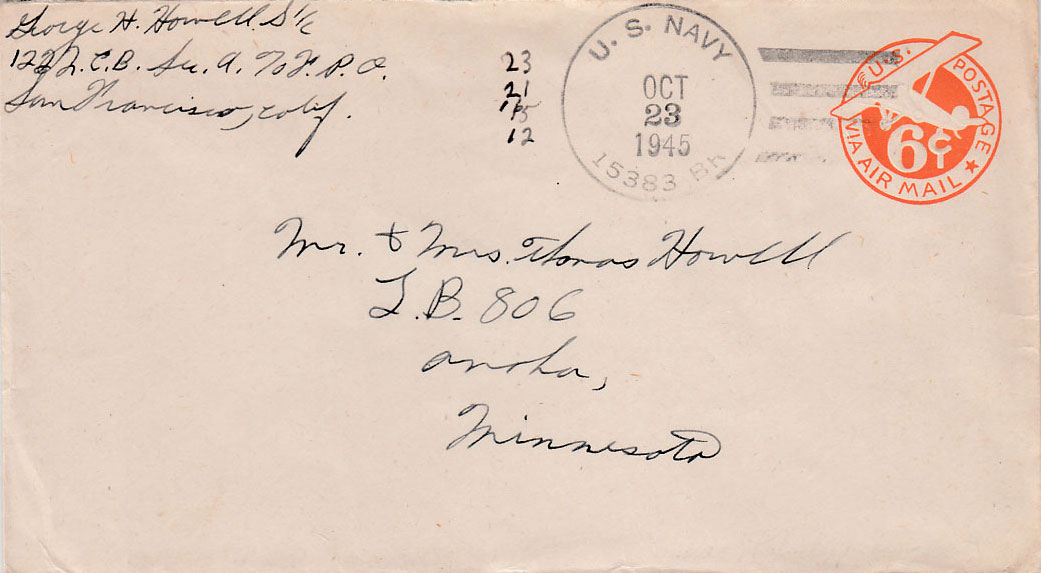 George H. Howell S 1/c
122 N.C.B. Su. A. % F.P.O.
San Francisco, Calif.
23
21
15
12
U. S. NAVY
OCT
23
1945
15383 Br.
U.S. POSTAGE
6¢
VIA AIR MAIL
Mr. & Mrs. Thomas Howell
L.B. 806
Anoka,
Minnesota